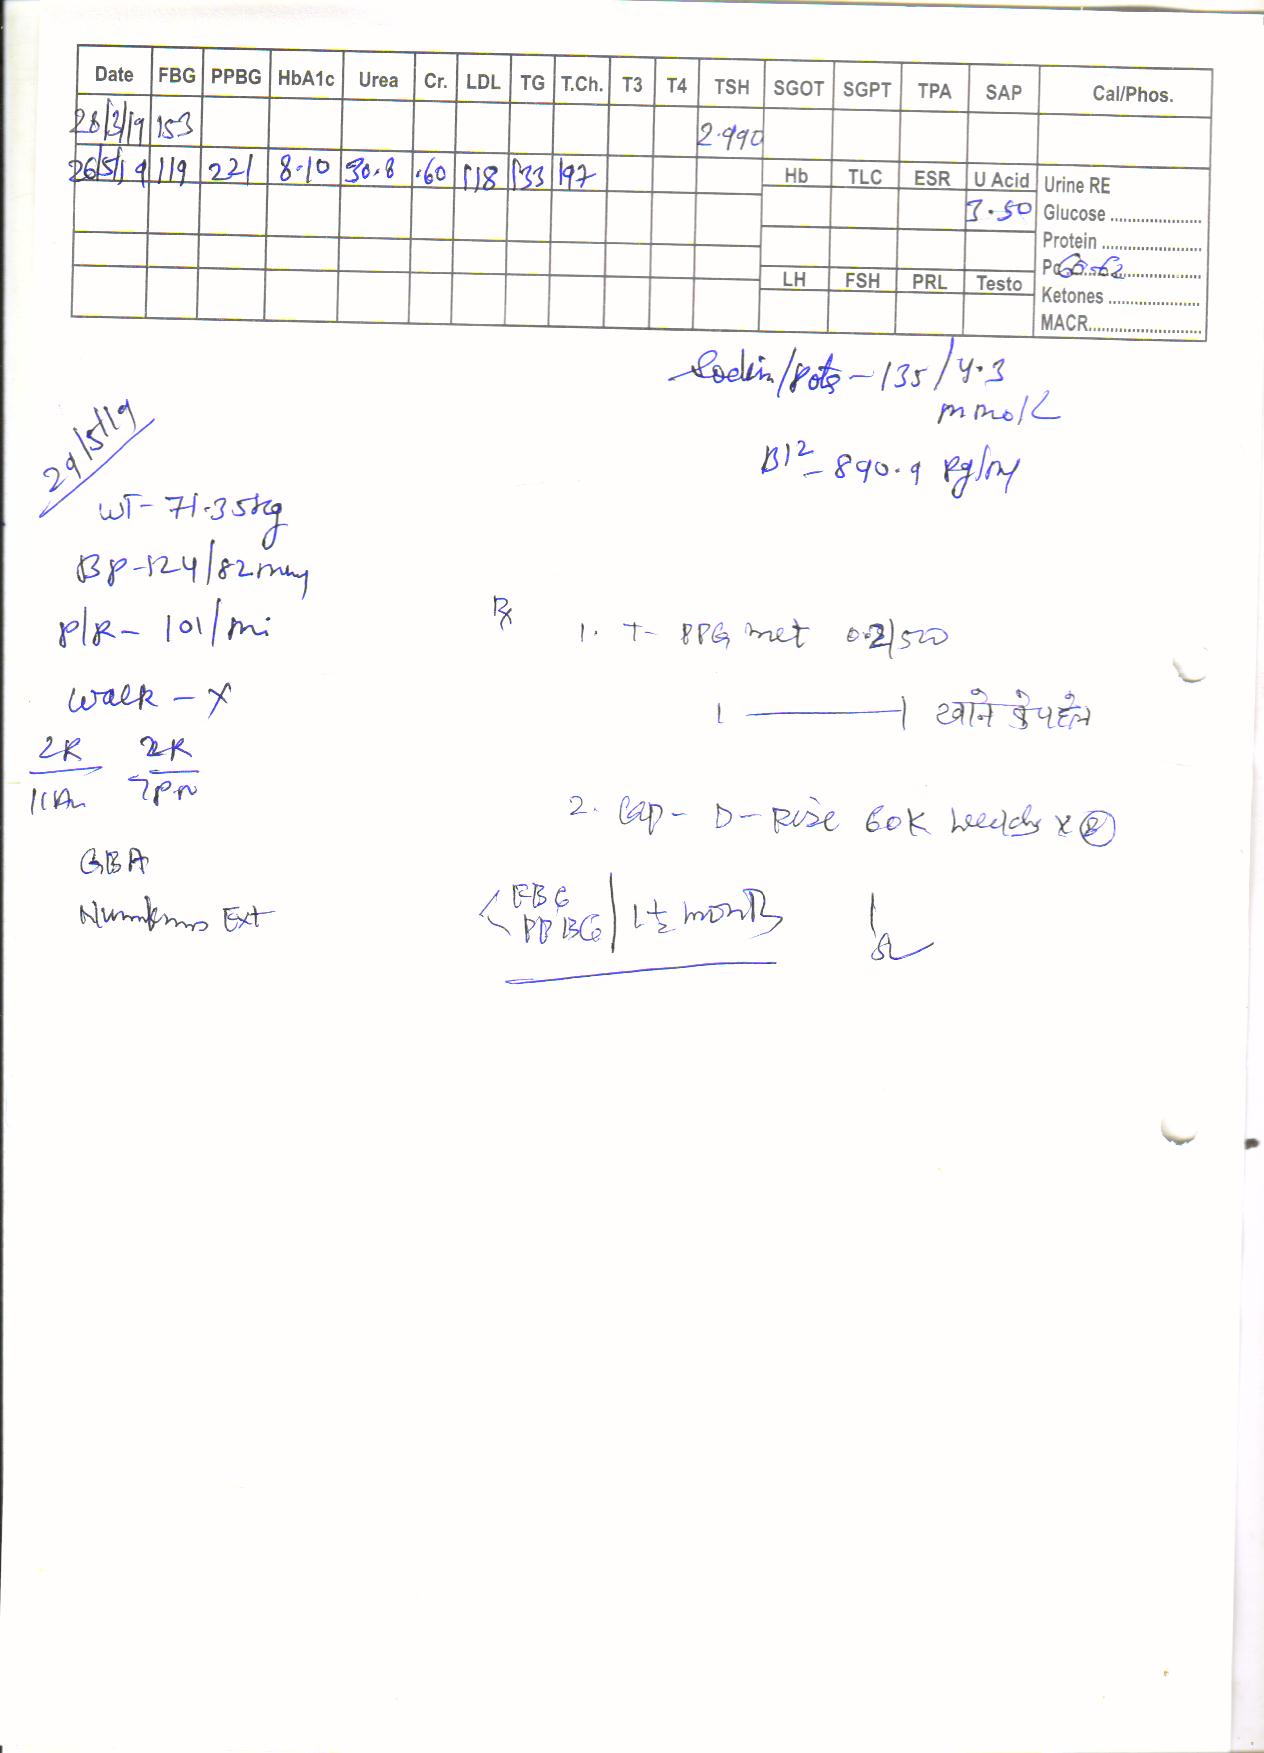 Date FBG PPBG HbA1c Urea Cr. LDL TG T.Ch. T3 T4 TSH SGOT SGPT TPA SAP Cal/Phos.
28/3/19 153 2.990
26/5/19 119 221 8.10 30.8 .60 118 133 197
Hb TLC ESR U Acid Urine RE
3.50 Glucose ....................
Protein ......................
65.62
LH FSH PRL Testo
Ketones ....................
MACR.........................
Sodium/Pots - 135/4.3
mmol/L
B12 - 890.9 pg/ml
29/5/19
WT- 71.35kg
BP-124/82mmHg
P/R - 101/mi
Walk - X
2R 2R
11Am 7pm
GBA
Numbness Ext
Rx
1. T- PPG met 0.2/500
1 ——— 1 खाने के पहले
2. Cap- D-Rise 60K weekly x 8
< FBG
PPBG / 1½ month